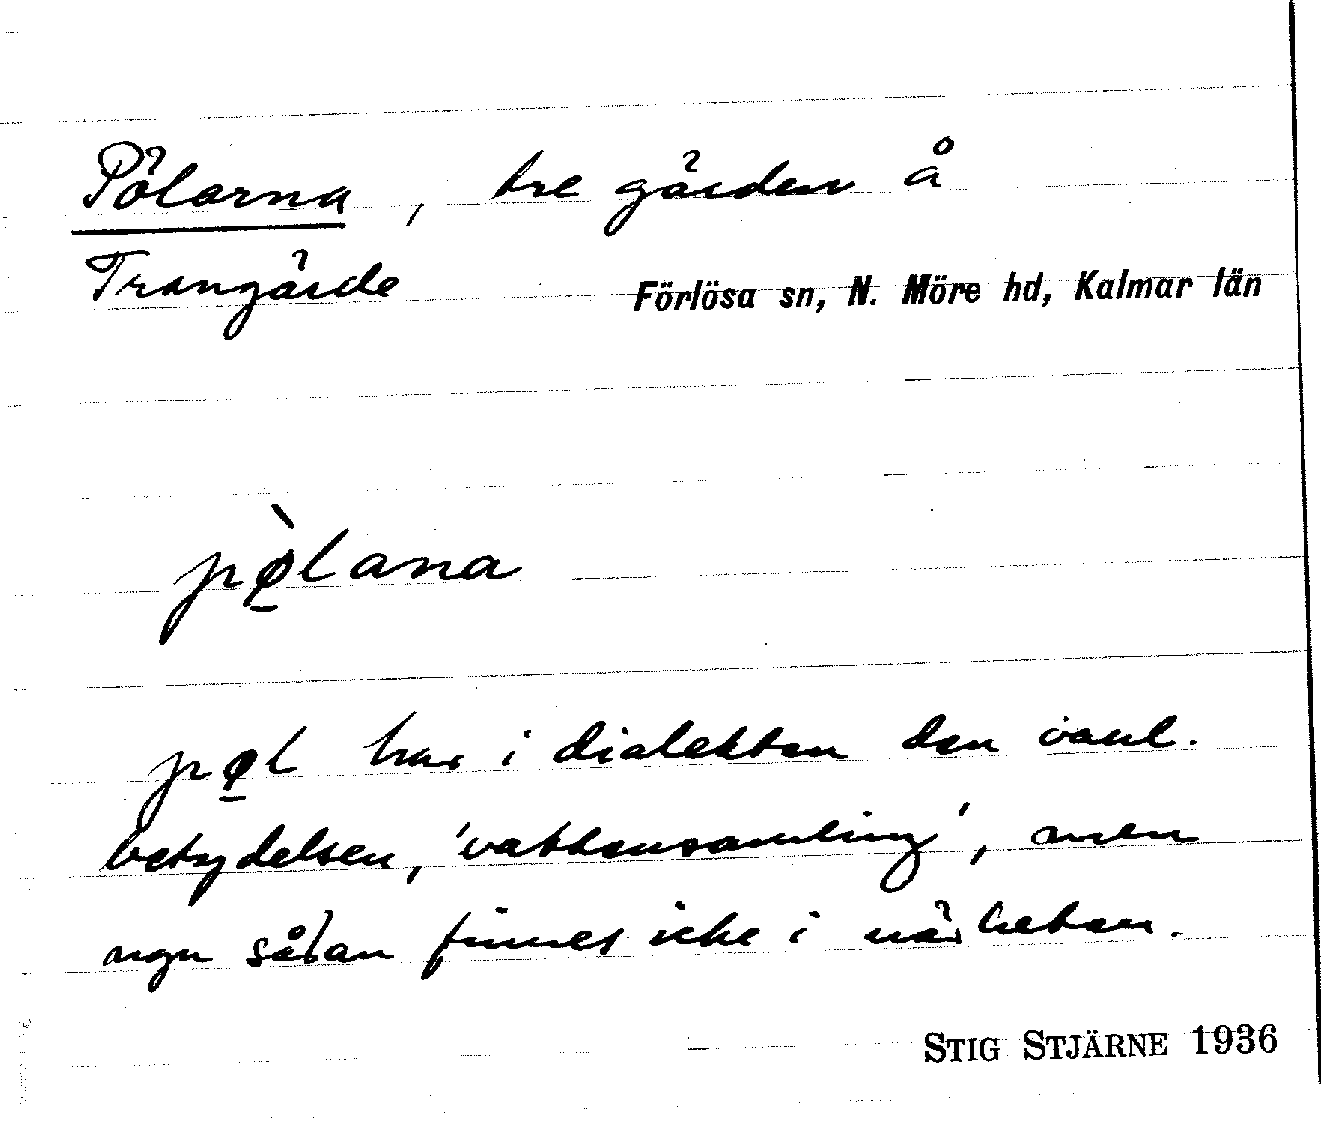 Pölarna, tre gärden å
Trangärde
Förlösa sn, N. Möre hd, Kalmar län
pø̱̀lana
pø̱l har i dialekten den vanl.
betydelsen, 'vattensamling', men
ngn sådan finnes icke i närheten.
STIG STJÄRNE 1936